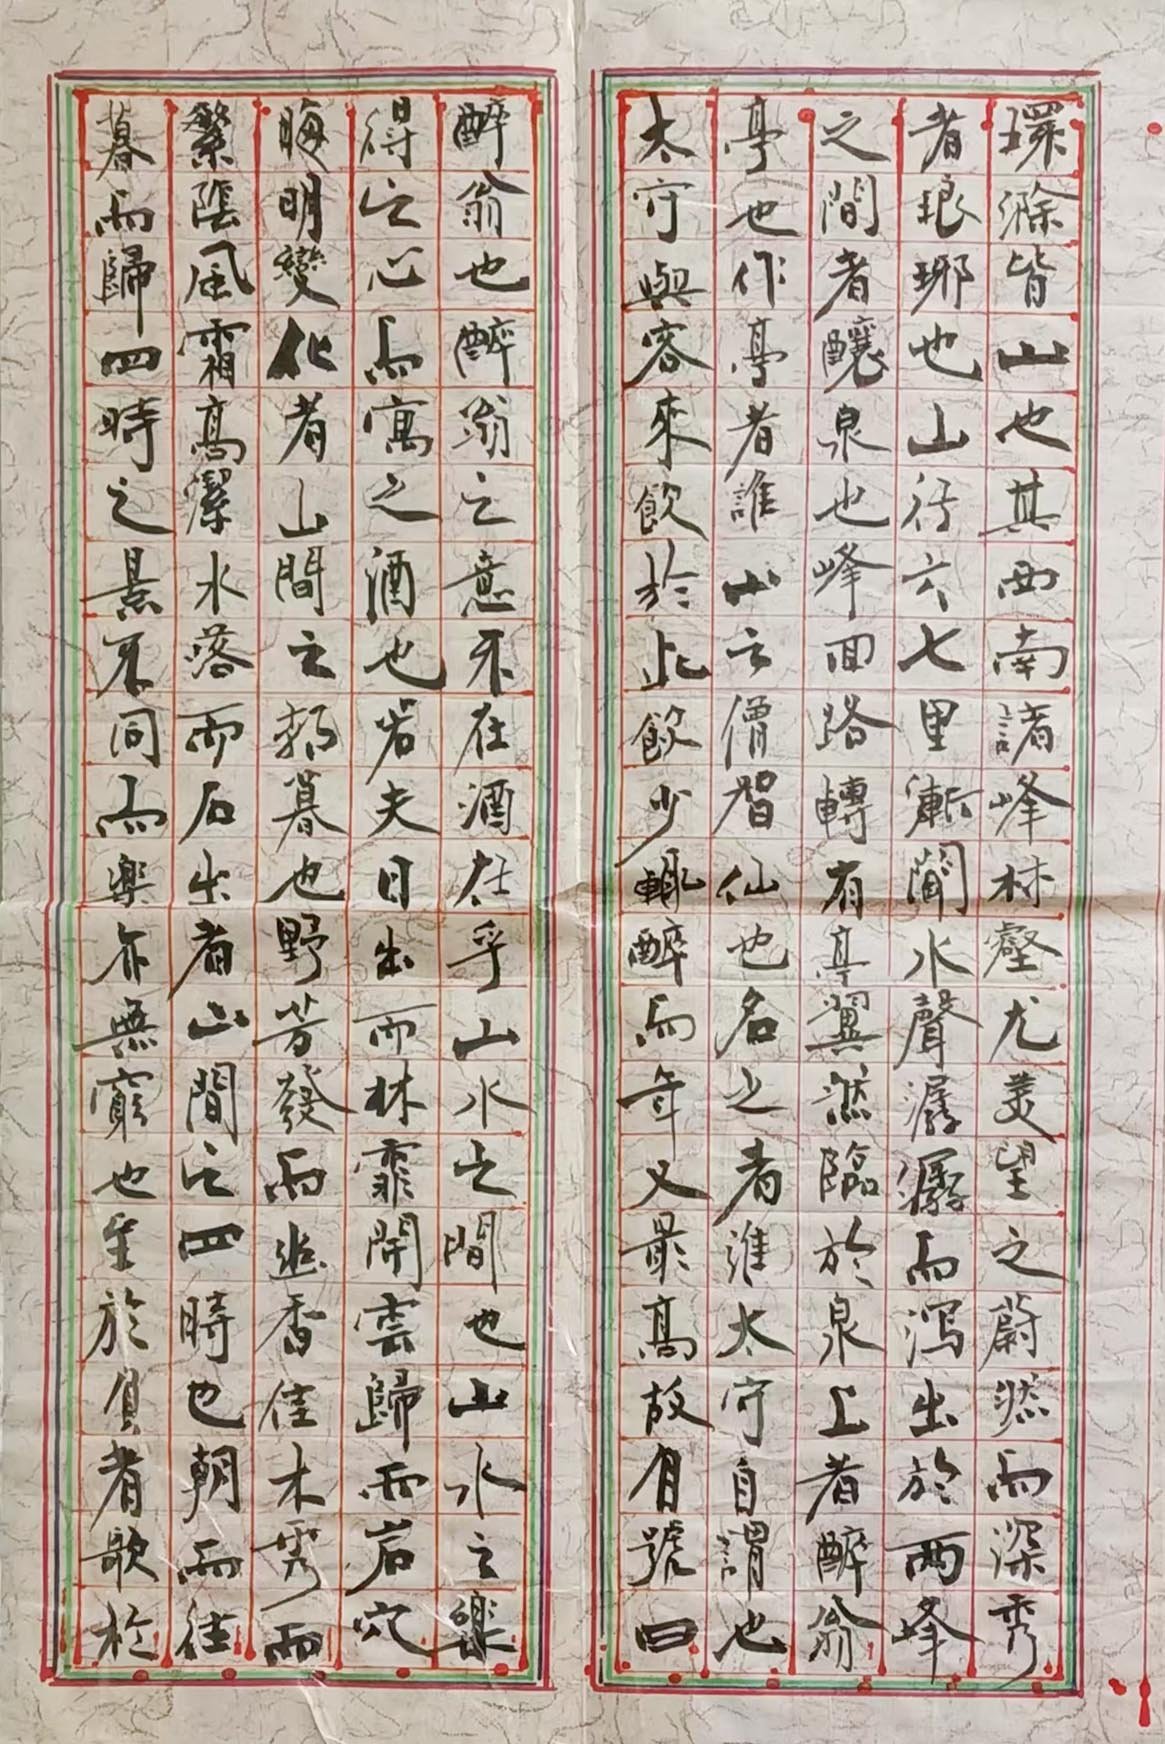 環滁皆山也其西南諸峰林壑尤美望之蔚然而深秀
者琅琊也山行六七里漸聞水聲潺潺而瀉出於兩峰
之間者釀泉也峰回路轉有亭翼然臨於泉上者醉翁
亭也作亭者誰山之僧智仙也名之者誰太守自謂也
太守與客來飲於此飲少輒醉而年又最高故自號曰
醉翁也醉翁之意不在酒在乎山水之間也山水之樂
得之心而寓之酒也若夫日出而林霏開雲歸而岩穴
晦明變化者山間之朝暮也野芳發而幽香佳木秀而
繁陰風霜高潔水落而石出者山間之四時也朝而往
暮而歸四時之景不同而樂亦無窮也至於負者歌於